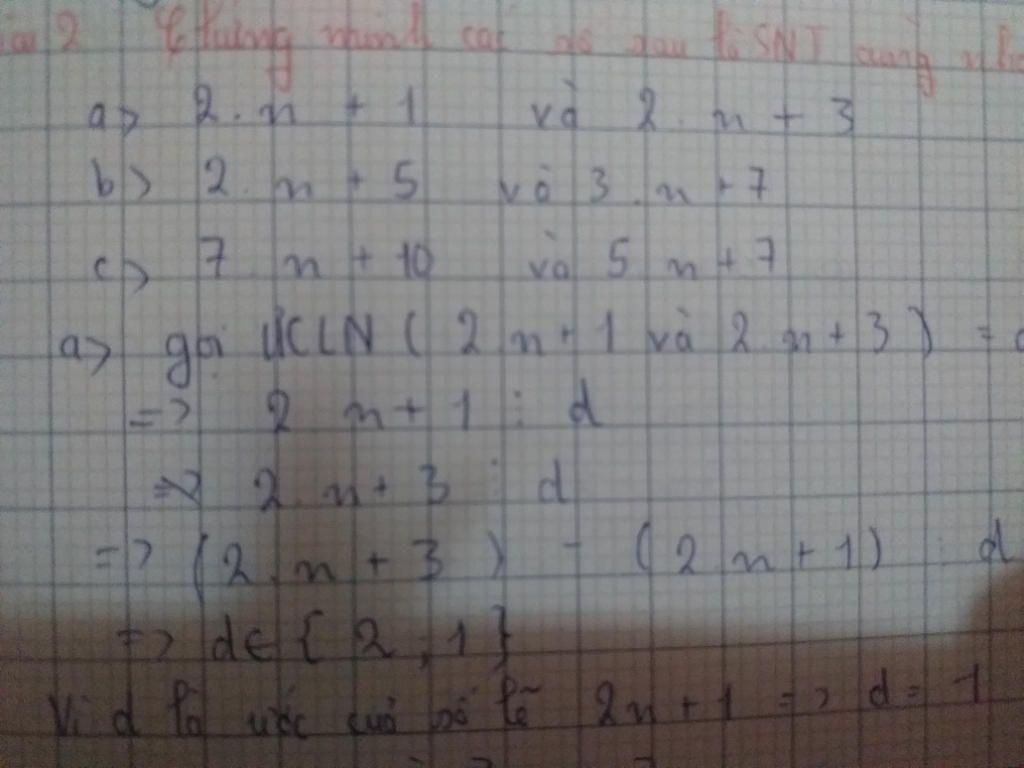 2 Chứng minh các số sau là SNT cùng
a> 2. n + 1 và 2. n + 3
b> 2. n + 5 và 3. n + 7
c> 7 n + 10 và 5 n + 7
a> gọi ƯCLN ( 2 n + 1 và 2. n + 3 ) =
=> 2 n + 1 ⋮ d
=> 2. n + 3 ⋮ d
=> ( 2. n + 3 ) - ( 2 n + 1 ) ⋮ d
=> d ∈ { 2, 1 }
Vì d là ước của số lẽ 2n + 1 => d = 1